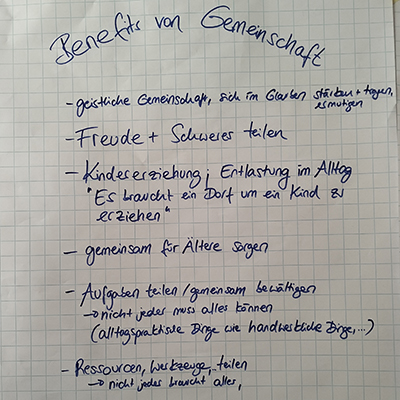 Benefits von Gemeinschaft
- geistliche Gemeinschaft, sich im Glauben stärken + tragen,
ermutigen
- Freude + Schweres teilen
- Kindeserziehung, Entlastung im Alltag
"Es braucht ein Dorf um ein Kind zu
erziehen"
- gemeinsam für Ältere sorgen
- Aufgaben teilen / gemeinsam bewältigen
→ nicht jeder muss alles können
(alltagspraktische Dinge wie handwerkliche Dinge,...)
- Ressourcen, Werkzeuge, teilen
→ nicht jeder braucht alles,